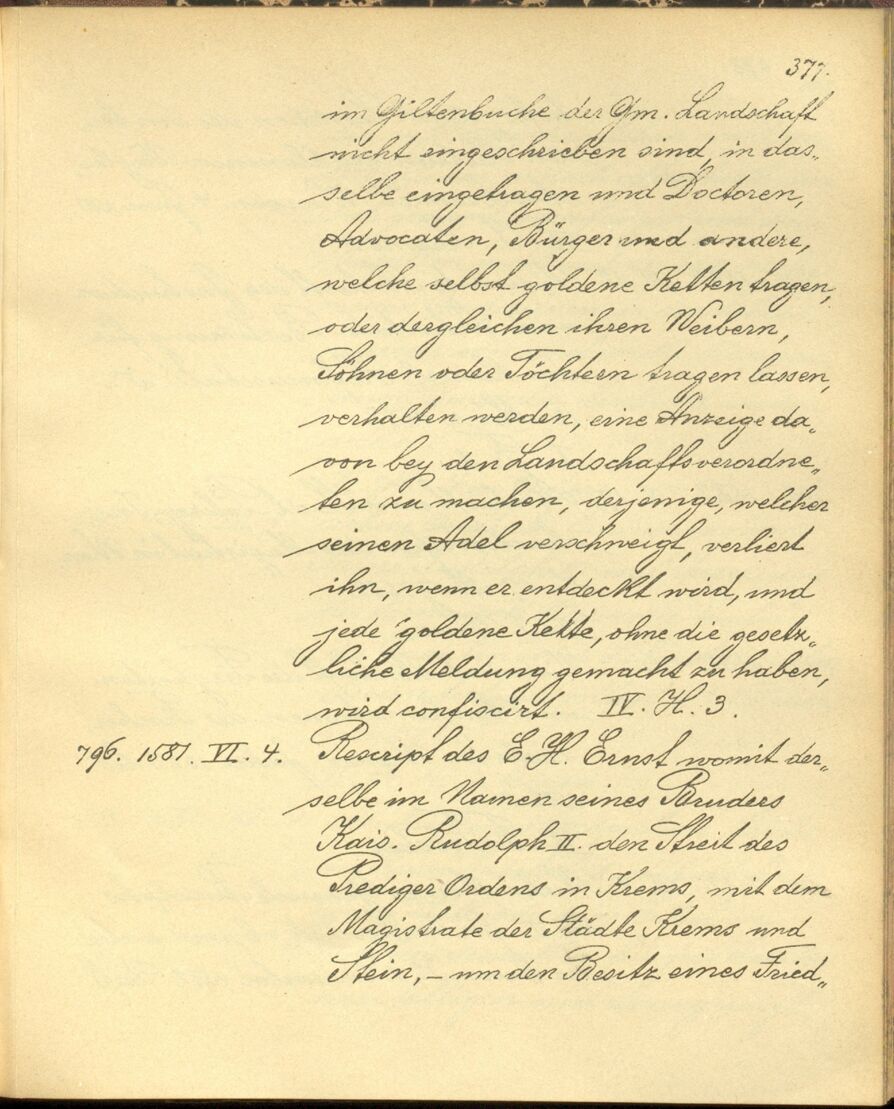 377.
im Giltenbuche der Gm. Landschaft
nicht eingeschrieben sind, in das„
selbe eingetragen und Doctoren,
Advocaten, Bürger und andere,
welche selbst goldene Ketten tragen,
oder dergleichen ihren Weibern,
Söhnen oder Töchtern tragen lassen,
verhalten werden, eine Anzeige da„
von bey den Landschaftsverordne„
ten zu machen, derjenige, welcher
seinen Adel verschweigt, verliert
ihn, wenn er entdeckt wird, und
jede goldene Kette, ohne die gesetz„
liche Meldung gemacht zu haben,
wird confiscirt. IV. H. 3.
796. 1587. VI. 4. Rescript des E. H. Ernst womit der„
selbe im Namen seines Bruders
Kais. Rudolph II. den Streit des
Prediger Ordens in Krems, mit dem
Magistrate der Städte Krems und
Stein, – um den Besitz eines Fried„